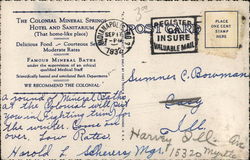 THE COLONIAL MINERAL SPRINGS
HOTEL AND SANITARIUM
(That home-like place)
Delicious Food — Courteous Service
Moderate Rates
FAMOUS MINERAL BATHS
under the supervision of an ethical
qualified Medical Staff
Scientifically heated and ventilated Bath Department
WE RECOMMEND THE COLONIAL
SEP 1
1934
REGISTER
OR
INSURE
VALUABLE MAIL
PLACE ONE
CENT STAMP
HERE
Sumner C. Bowman
a course of Mineral Baths
at the Colonial will put
you in fighting trim for
the winter. Come
over. Low Rates
Harold
Mgr.